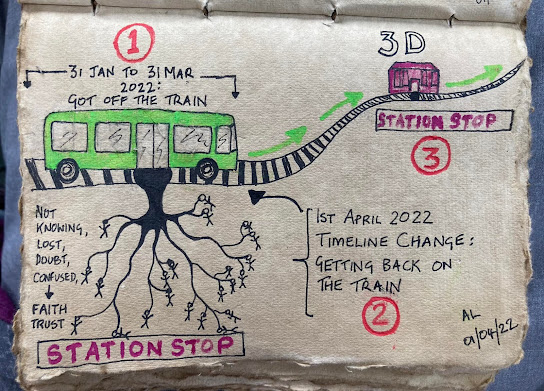 1
31 JAN TO 31 MAR
2022:
GOT OFF THE TRAIN
3D
STATION STOP
3
NOT
KNOWING,
LOST,
DOUBT,
CONFUSED,
FAITH
TRUST
STATION STOP
1ST APRIL 2022
TIMELINE CHANGE:
GETTING BACK ON
THE TRAIN
2
AL
01/04/22